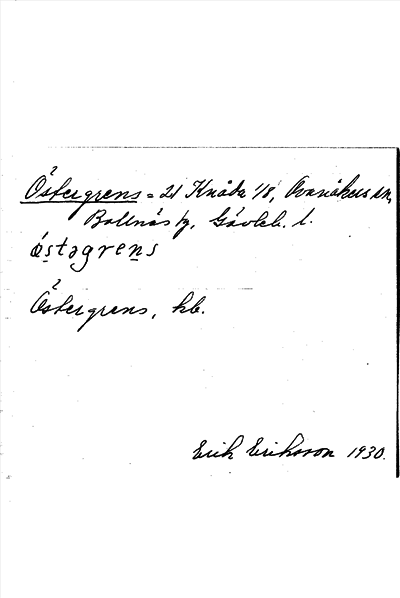 Östergrens = 21 Knåda 1/8, Ovanåkers sn,
Bollnäs tg, Gävleb. l.
östəgrens
Östergrens, hb.
Erik Eriksson 1930.